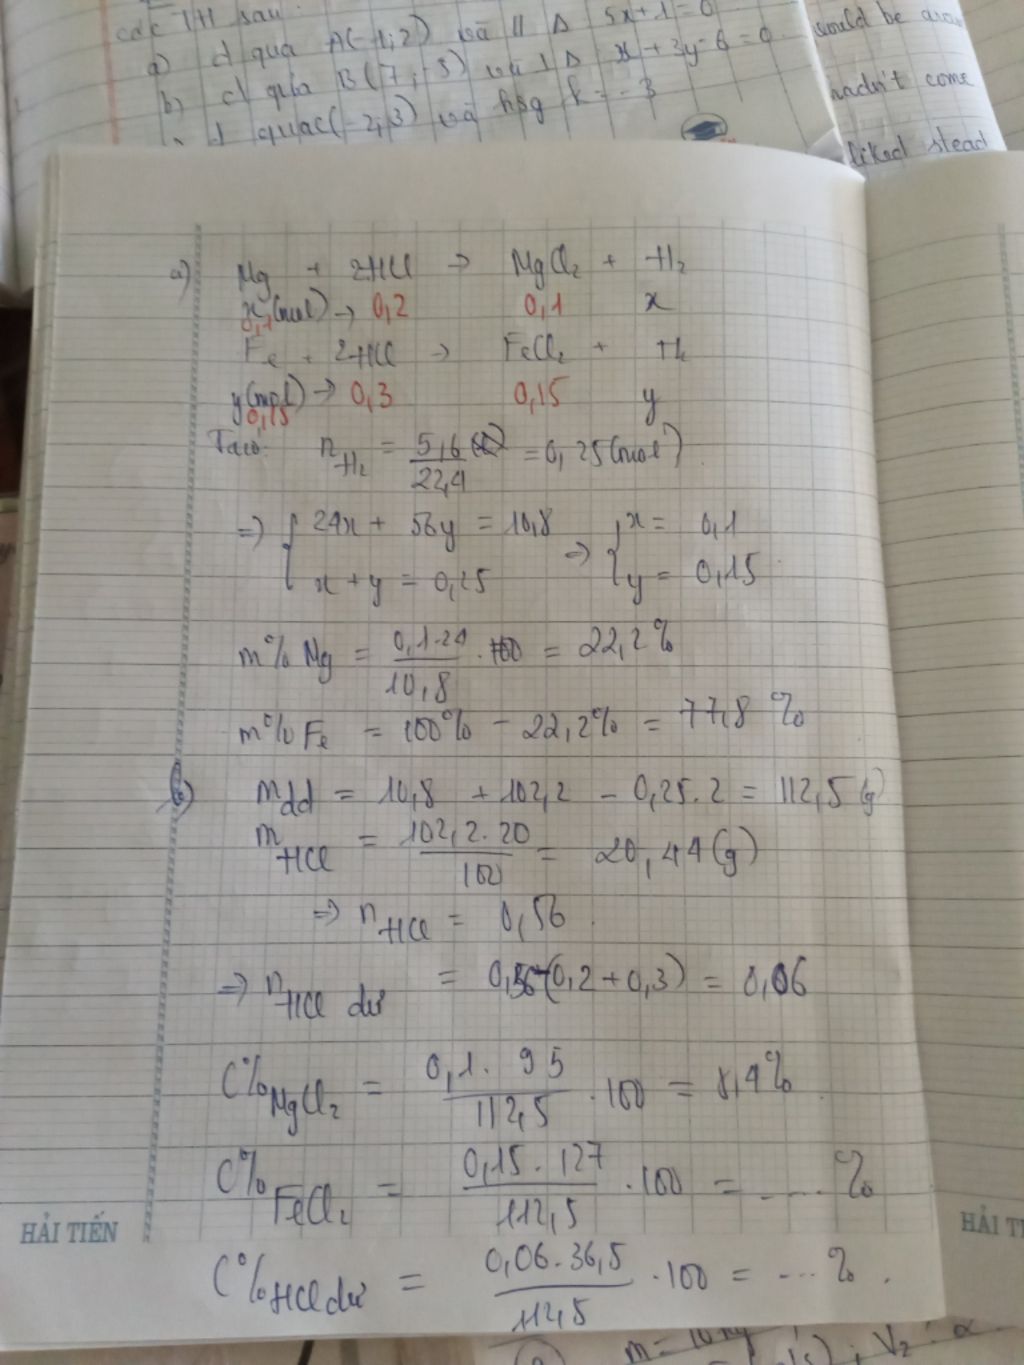 các TH sau:
a) d qua A(-1;2) và // Δ 5x+1=0
b) d qua B(7;-3) và ⊥ Δ x+3y-6=0
d qua C(-2;3) và hsg k=-3
would be
hadn't come
liked stead
a) Mg + 2HCl → MgCl₂ + H₂
x(mol) → 0,2 0,1 x
0,1
Fe + 2HCl → FeCl₂ + H₂
y(mol) → 0,3 0,15 y
0,15
Ta có: n H₂ = 5,6/22,4 = 0,25(mol)
=> { 24x + 56y = 10,8 => { x = 0,1
x + y = 0,25 y = 0,15
m% Mg = 0,1.24/10,8 . 100 = 22,2%
m% Fe = 100% - 22,2% = 77,8 %
b) mdd = 10,8 + 102,2 - 0,25.2 = 112,5 (g)
m HCl = 102,2.20/100 = 20,44(g)
=> n HCl = 0,56.
=> n HCl dư = 0,56-(0,2+0,3) = 0,06
C% MgCl₂ = 0,1. 95/112,5 .100 = 8,4%
C% FeCl₂ = 0,15.127/112,5 .100 = .... %
HẢI TIẾN
HẢI TI
C% HCl dư = 0,06.36,5/112,5 .100 = ....%.